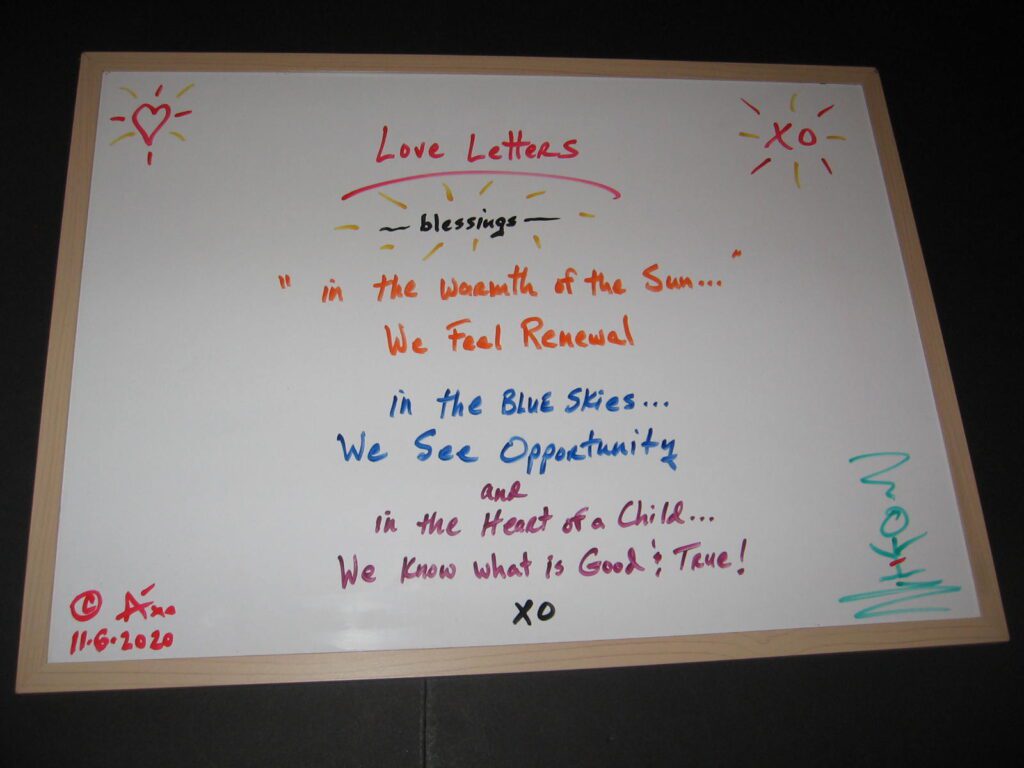 Love Letters
XO
~ blessings ~
" in the warmth of the Sun... "
We Feel Renewal
in the BLUE SKies...
We See Opportunity
and
in the Heart of a Child...
We Know what is Good & True!
XO
© A xo
11.6.2020